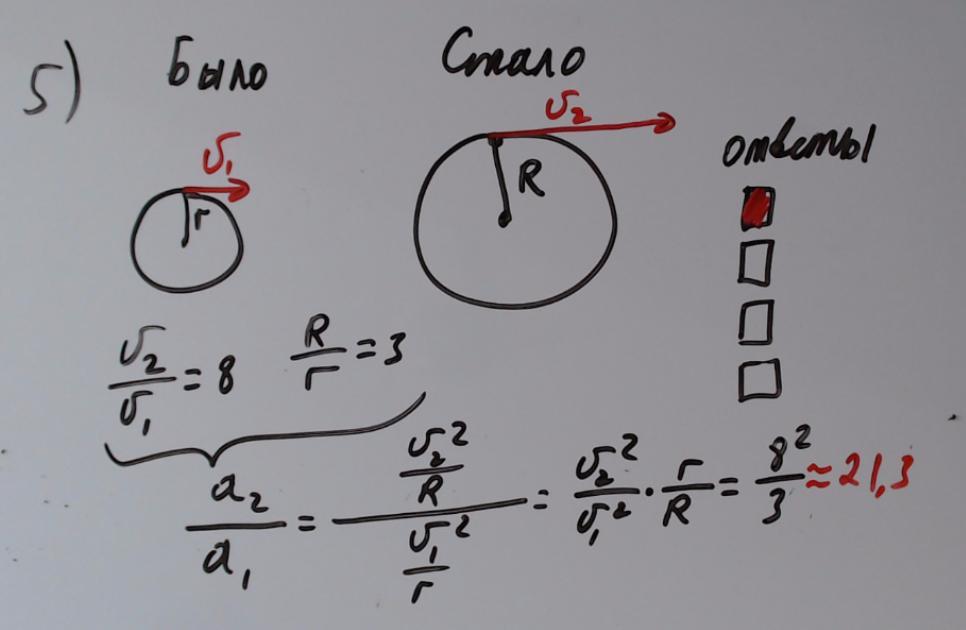 5) Было Стало
υ₁ r
υ₂ R
ответы
υ₂/υ₁ = 8 R/r = 3
a₂/a₁ = (υ₂²/R)/(υ₁²/r) = υ₂²/υ₁² · r/R = 8²/3 ≈ 21,3